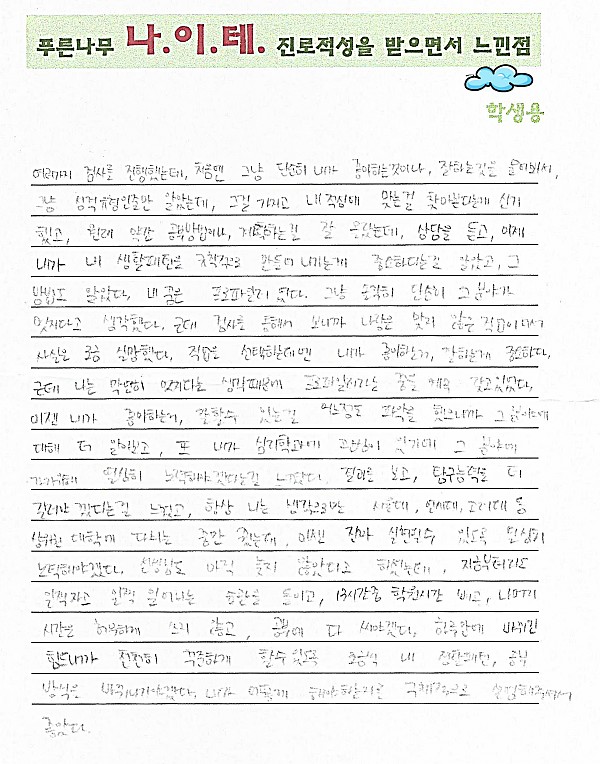 푸른나무 나.이.테. 진로적성을 받으면서 느낀점
학생용
여러가지 검사를 진행했는데, 처음엔 그냥 단순히 내가 좋아하는것이나, 잘하는것을 물어봐서,
그냥 성격유형인줄만 알았는데, 그걸 가지고 내 적성에 맞는걸 찾아준다는게 신기
했고, 원래 약간 공부방법이나, 계획하는걸 잘 몰랐는데, 상담을 듣고, 이제
내가 내 생활패턴을 규칙적으로 만들어 나가는게 중요하다는걸 알았고, 그
방법도 알았다. 내 꿈은 프로파일러 였다. 그냥 솔직히 단순히 그 분야가
멋지다고 생각했다. 근데 검사를 통해서 보니까 나랑은 맞지 않은 직업이어서
사실은 조금 실망했다. 직업을 선택하는데엔 내가 좋아하는거, 잘하는게 중요하다.
근데 나는 막연히 멋지다는 생각때문에 프로파일러라는 꿈을 계속 갖고있었다.
이젠 내가 좋아하는거, 잘할수 있는걸 어느정도 파악을 했으니까 그 분야에
대해 더 알아보고, 또 내가 심리학과에 관심이 있기에 그 분야에
열심히 노력해야겠다는걸 느꼈다. 결과를 보고, 탐구능력을 더
길러야 겠다는걸 느꼈고, 항상 나는 생각으로만 서울대, 연세대, 고려대 등
대학에 다니는 상상만 했는데, 이젠 진짜 실현될수 있도록 열심히
노력해야겠다. 선생님도 아직 늦지 않았다고 하셨는데, 지금부터라도
일찍자고 일찍 일어나는 습관을 들이고, 13시간중 학원시간 빼고, 나머지
시간을 허투루 쓰지 않고, 공부에 다 써야겠다. 하루만에 바뀌긴
힘드니까 천천히 꾸준하게 할수 있도록 조금씩 내 생활패턴, 공부
방식을 바꿔나가야겠다. 내가 어떻게 해야하는지를 구체적으로 설명해주셔서
좋았다.